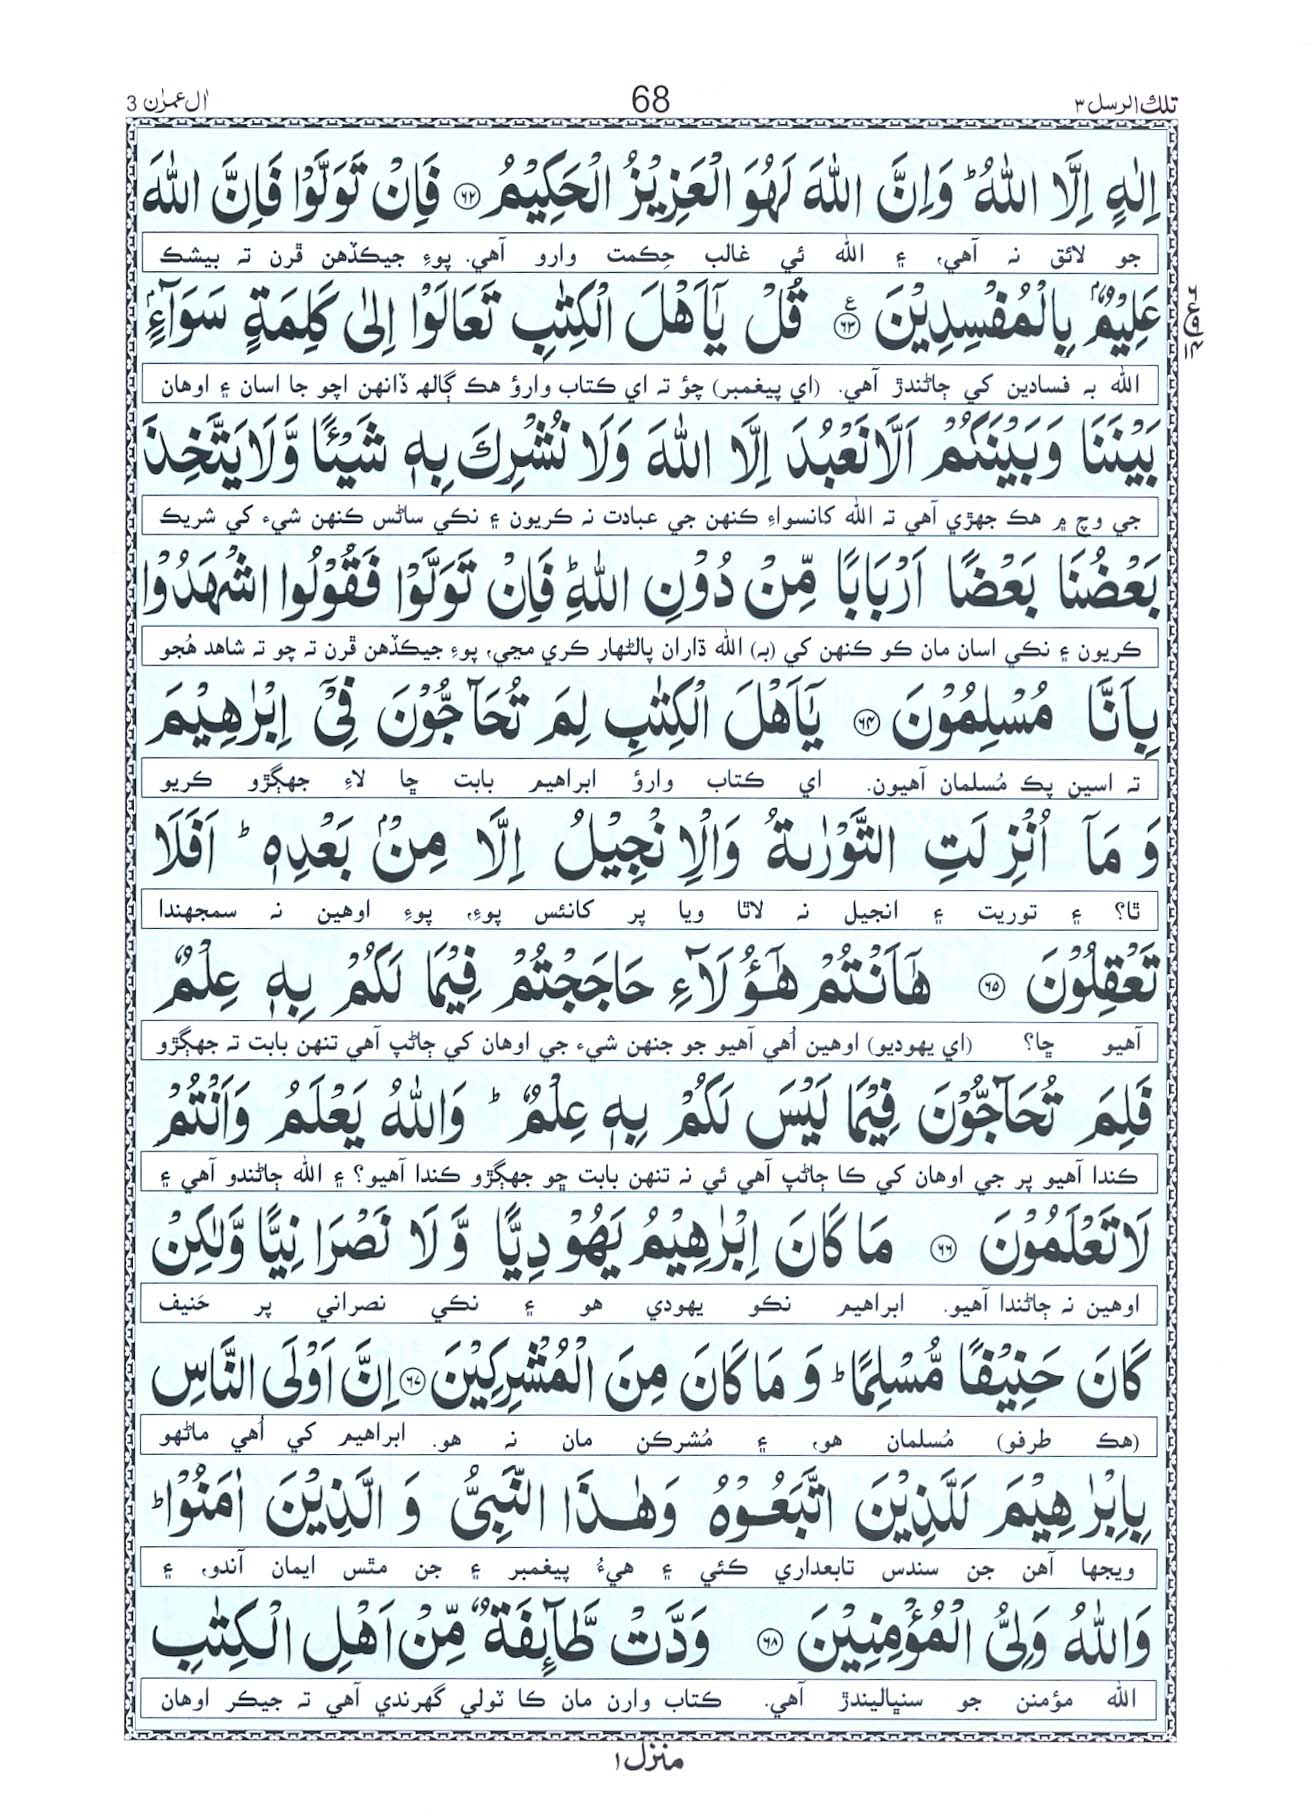 تلك الرسل ٣ 68 اٰل عمرٰن 3
اِلٰهٍ اِلَّا اللّٰهُ ؕ وَاِنَّ اللّٰهَ لَهُوَ الْعَزِيْزُ الْحَكِيْمُ ﴿۶۲﴾ فَاِنْ تَوَلَّوْا فَاِنَّ اللّٰهَ
جو لائق نہ آهي، ۽ الله ئي غالب حِڪمت وارو آهي. پوءِ جيڪڏهن ڦرن تہ بيشڪ
عَلِيْمٌۢ بِالْمُفْسِدِيْنَ ﴿۶۳﴾ ع قُلْ يٰۤاَهْلَ الْكِتٰبِ تَعَالَوْا اِلٰى كَلِمَةٍ سَوَآءٍۢ
الله بہ فسادين کي ڄاڻندڙ آهي. (اي پيغمبر) چؤ تہ اي ڪتاب وارؤ هڪ ڳالهہ ڏانهن اچو جا اسان ۽ اوهان
بَيْنَنَا وَبَيْنَكُمْ اَلَّا نَعْبُدَ اِلَّا اللّٰهَ وَلَا نُشْرِكَ بِهٖ شَيْـًٔا وَّلَا يَتَّخِذَ
جي وچ ۾ هڪ جهڙي آهي تہ الله کانسواءِ ڪنهن جي عبادت نہ ڪريون ۽ نڪي ساڻس ڪنهن شيء کي شريڪ
بَعْضُنَا بَعْضًا اَرْبَابًا مِّنْ دُوْنِ اللّٰهِ ؕ فَاِنْ تَوَلَّوْا فَقُوْلُوا اشْهَدُوْا
ڪريون ۽ نڪي اسان مان ڪو ڪنهن کي (بہ) الله ڌاران پالڻهار ڪري مڃي، پوءِ جيڪڏهن ڦرن تہ چو تہ شاهد هُجو
بِاَنَّا مُسْلِمُوْنَ ﴿۶۴﴾ يٰۤاَهْلَ الْكِتٰبِ لِمَ تُحَآجُّوْنَ فِيْۤ اِبْرٰهِيْمَ
تہ اسين پڪ مُسلمان آهيون. اي ڪتاب وارؤ ابراهيم بابت ڇا لاءِ جهڳڙو ڪريو
وَ مَاۤ اُنْزِلَتِ التَّوْرٰىةُ وَالْاِنْجِيْلُ اِلَّا مِنْۢ بَعْدِهٖ ؕ اَفَلَا
ٿا؟ ۽ توريت ۽ انجيل نہ لاٿا ويا پر کانئس پوءِ، پوءِ اوهين نہ سمجهندا
تَعْقِلُوْنَ ﴿۶۵﴾ هٰۤاَنْتُمْ هٰۤؤُلَآءِ حَاجَجْتُمْ فِيْمَا لَكُمْ بِهٖ عِلْمٌ
آهيو ڇا؟ (اي يهوديو) اوهين اُهي آهيو جو جنهن شيء جي اوهان کي ڄاڻپ آهي تنهن بابت تہ جهڳڙو
فَلِمَ تُحَآجُّوْنَ فِيْمَا لَيْسَ لَكُمْ بِهٖ عِلْمٌ ؕ وَاللّٰهُ يَعْلَمُ وَاَنْتُمْ
ڪندا آهيو پر جي اوهان کي ڪا ڄاڻپ آهي ئي نہ تنهن بابت ڇو جهڳڙو ڪندا آهيو؟ ۽ الله ڄاڻندو آهي ۽
لَا تَعْلَمُوْنَ ﴿۶۶﴾ مَا كَانَ اِبْرٰهِيْمُ يَهُوْدِيًّا وَّ لَا نَصْرَانِيًّا وَّلٰكِنْ
اوهين نہ ڄاڻندا آهيو. ابراهيم نڪو يهودي هو ۽ نڪي نصراني پر حَنيف
كَانَ حَنِيْفًا مُّسْلِمًا ؕ وَ مَا كَانَ مِنَ الْمُشْرِكِيْنَ ﴿۶۷﴾ اِنَّ اَوْلَى النَّاسِ
(هڪ طرفو) مُسلمان هو، ۽ مُشرڪن مان نہ هو. ابراهيم کي اُهي ماڻهو
بِاِبْرٰهِيْمَ لَلَّذِيْنَ اتَّبَعُوْهُ وَهٰذَا النَّبِيُّ وَ الَّذِيْنَ اٰمَنُوْا ؕ
ويجها آهن جن سندس تابعداري ڪئي ۽ هيءُ پيغمبر ۽ جن مٿس ايمان آندو، ۽
وَاللّٰهُ وَلِيُّ الْمُؤْمِنِيْنَ ﴿۶۸﴾ وَدَّتْ طَّآئِفَةٌ مِّنْ اَهْلِ الْكِتٰبِ
الله مؤمنن جو سنڀاليندڙ آهي. ڪتاب وارن مان ڪا ٽولي گهرندي آهي تہ جيڪر اوهان
منزل ١